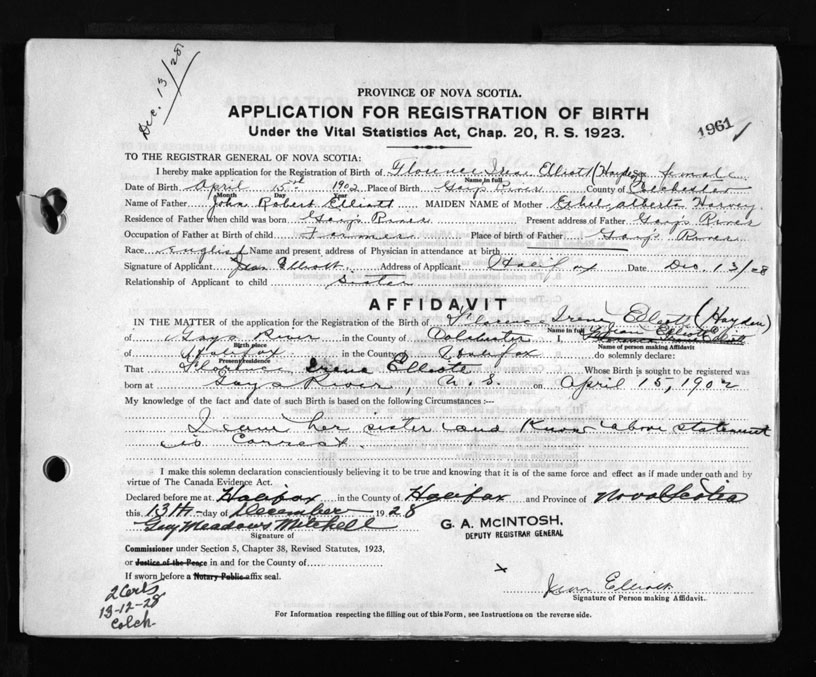 Dec. 13/28
PROVINCE OF NOVA SCOTIA.
APPLICATION FOR REGISTRATION OF BIRTH
Under the Vital Statistics Act, Chap. 20, R. S. 1923.
1961
TO THE REGISTRAR GENERAL OF NOVA SCOTIA:
I hereby make application for the Registration of Birth of Florence Irene Elliott (Hayden) Sex female
Name in full
Date of Birth April 15th 1902 Place of Birth Gays River County of Colchester
Month Day Year
Name of Father John Robert Elliott MAIDEN NAME of Mother Ethel Alberta Harvey
Residence of Father when child was born Gays River Present address of Father Gays River
Occupation of Father at Birth of child Farmer Place of birth of Father Gays River
Race English Name and present address of Physician in attendance at birth
Signature of Applicant Jean Elliott Address of Applicant Halifax Date Dec. 13/28
Relationship of Applicant to child sister
AFFIDAVIT
IN THE MATTER of the application for the Registration of the Birth of Florence Irene Elliott (Hayden)
Name in full
of Gays River in the County of Colchester I, Jean Elliott
Birth place
Name of person making Affidavit
of Halifax in the County of Halifax do solemnly declare:
Present residence
That Florence Irene Elliott Whose Birth is sought to be registered was
born at Gays River, N. S. on April 15, 1902
My knowledge of the fact and date of such Birth is based on the following Circumstances :—
I am her sister and know above statement
is correct.
I make this solemn declaration conscientiously believing it to be true and knowing that it is of the same force and effect as if made under oath and by
virtue of The Canada Evidence Act.
Declared before me at Halifax in the County of Halifax and Province of Nova Scotia
this 13th day of December 1928
Guy Meadows Mitchell
Signature of
G. A. McINTOSH,
DEPUTY REGISTRAR GENERAL
Commissioner under Section 5, Chapter 38, Revised Statutes, 1923,
or Justice of the Peace in and for the County of
If sworn before a Notary Public affix seal.
x
Jean Elliott
Signature of Person making Affidavit.
2 Certs
13-12-28
Colch.
For Information respecting the filling out of this Form, see Instructions on the reverse side.